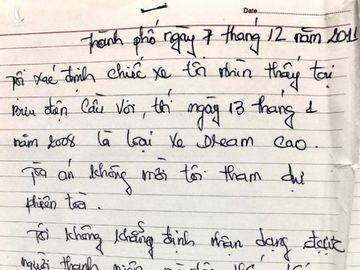 Date
Thành phố ngày 7 tháng 12 năm 2011
Tôi xác định chiếc xe tôi nhìn thấy tại
Bưu điện Cầu Voi, tối ngày 13 tháng 1
năm 2008 là loại xe Dream cao.
Tòa án không mời tôi tham dự
phiên toà.
Tôi không khẳng định nhận dạng được
người thanh niên